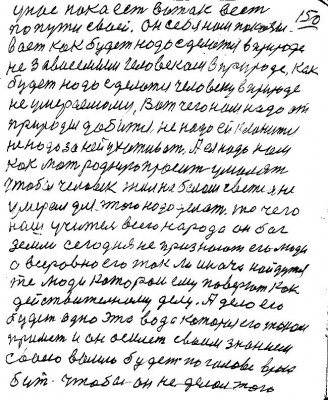 150
у нас пока ест вот так вест
по пути своей. Он себя нам показы-
вает как будет надо сделати в природе
не зависемим человекам в природе, как
будет надо сделати человеку в природе
не умераюшими, Вот чего нам надо от
природы добитця, не надо ей кланитця
не надо за ней ухаживат, А ея надо нам
как мат родную просит умолят
чтобы человек жил на белом свете и не
умерал для этого надо делат. то чего
наш учител всего народа он бог
земли сегодня не признают его люди
а всеровно его так ли иначе найдутця
те люди которои ему поверят как
действителному делу. А дело его
будет одно это вода которая его таким
примет и он осилет своим знанием
своею волию будет по голове врага
бит. чтобы он не делал того